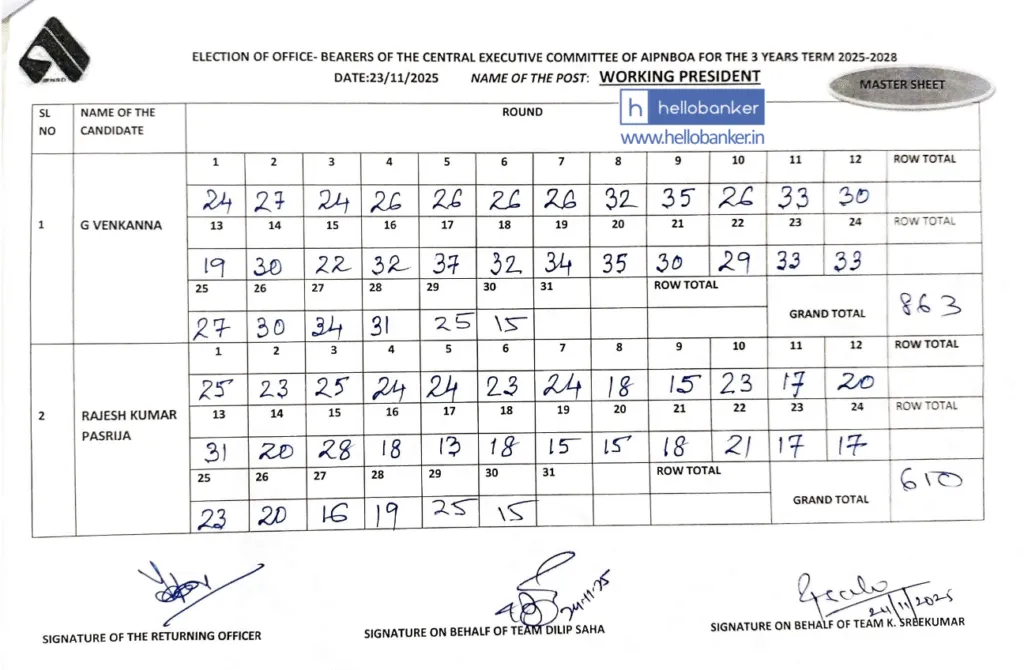 AIPNBOA
ELECTION OF OFFICE- BEARERS OF THE CENTRAL EXECUTIVE COMMITTEE OF AIPNBOA FOR THE 3 YEARS TERM 2025-2028
DATE:23/11/2025 NAME OF THE POST: WORKING PRESIDENT
MASTER SHEET
h hellobanker
www.hellobanker.in
SL NO NAME OF THE CANDIDATE ROUND
1 2 3 4 5 6 7 8 9 10 11 12 ROW TOTAL
24 27 24 26 26 26 26 32 35 26 33 30
1 G VENKANNA 13 14 15 16 17 18 19 20 21 22 23 24 ROW TOTAL
19 30 22 32 37 32 34 35 30 29 33 33
25 26 27 28 29 30 31 ROW TOTAL
GRAND TOTAL 863
27 30 34 31 25 15
1 2 3 4 5 6 7 8 9 10 11 12 ROW TOTAL
25 23 25 24 24 23 24 18 15 23 17 20
2 RAJESH KUMAR PASRIJA 13 14 15 16 17 18 19 20 21 22 23 24 ROW TOTAL
31 20 28 18 13 18 15 15 18 21 17 17
25 26 27 28 29 30 31 ROW TOTAL
GRAND TOTAL 610
23 20 16 19 25 15
24-11-25
24/11/2025
SIGNATURE OF THE RETURNING OFFICER
SIGNATURE ON BEHALF OF TEAM DILIP SAHA
SIGNATURE ON BEHALF OF TEAM K. SREEKUMAR